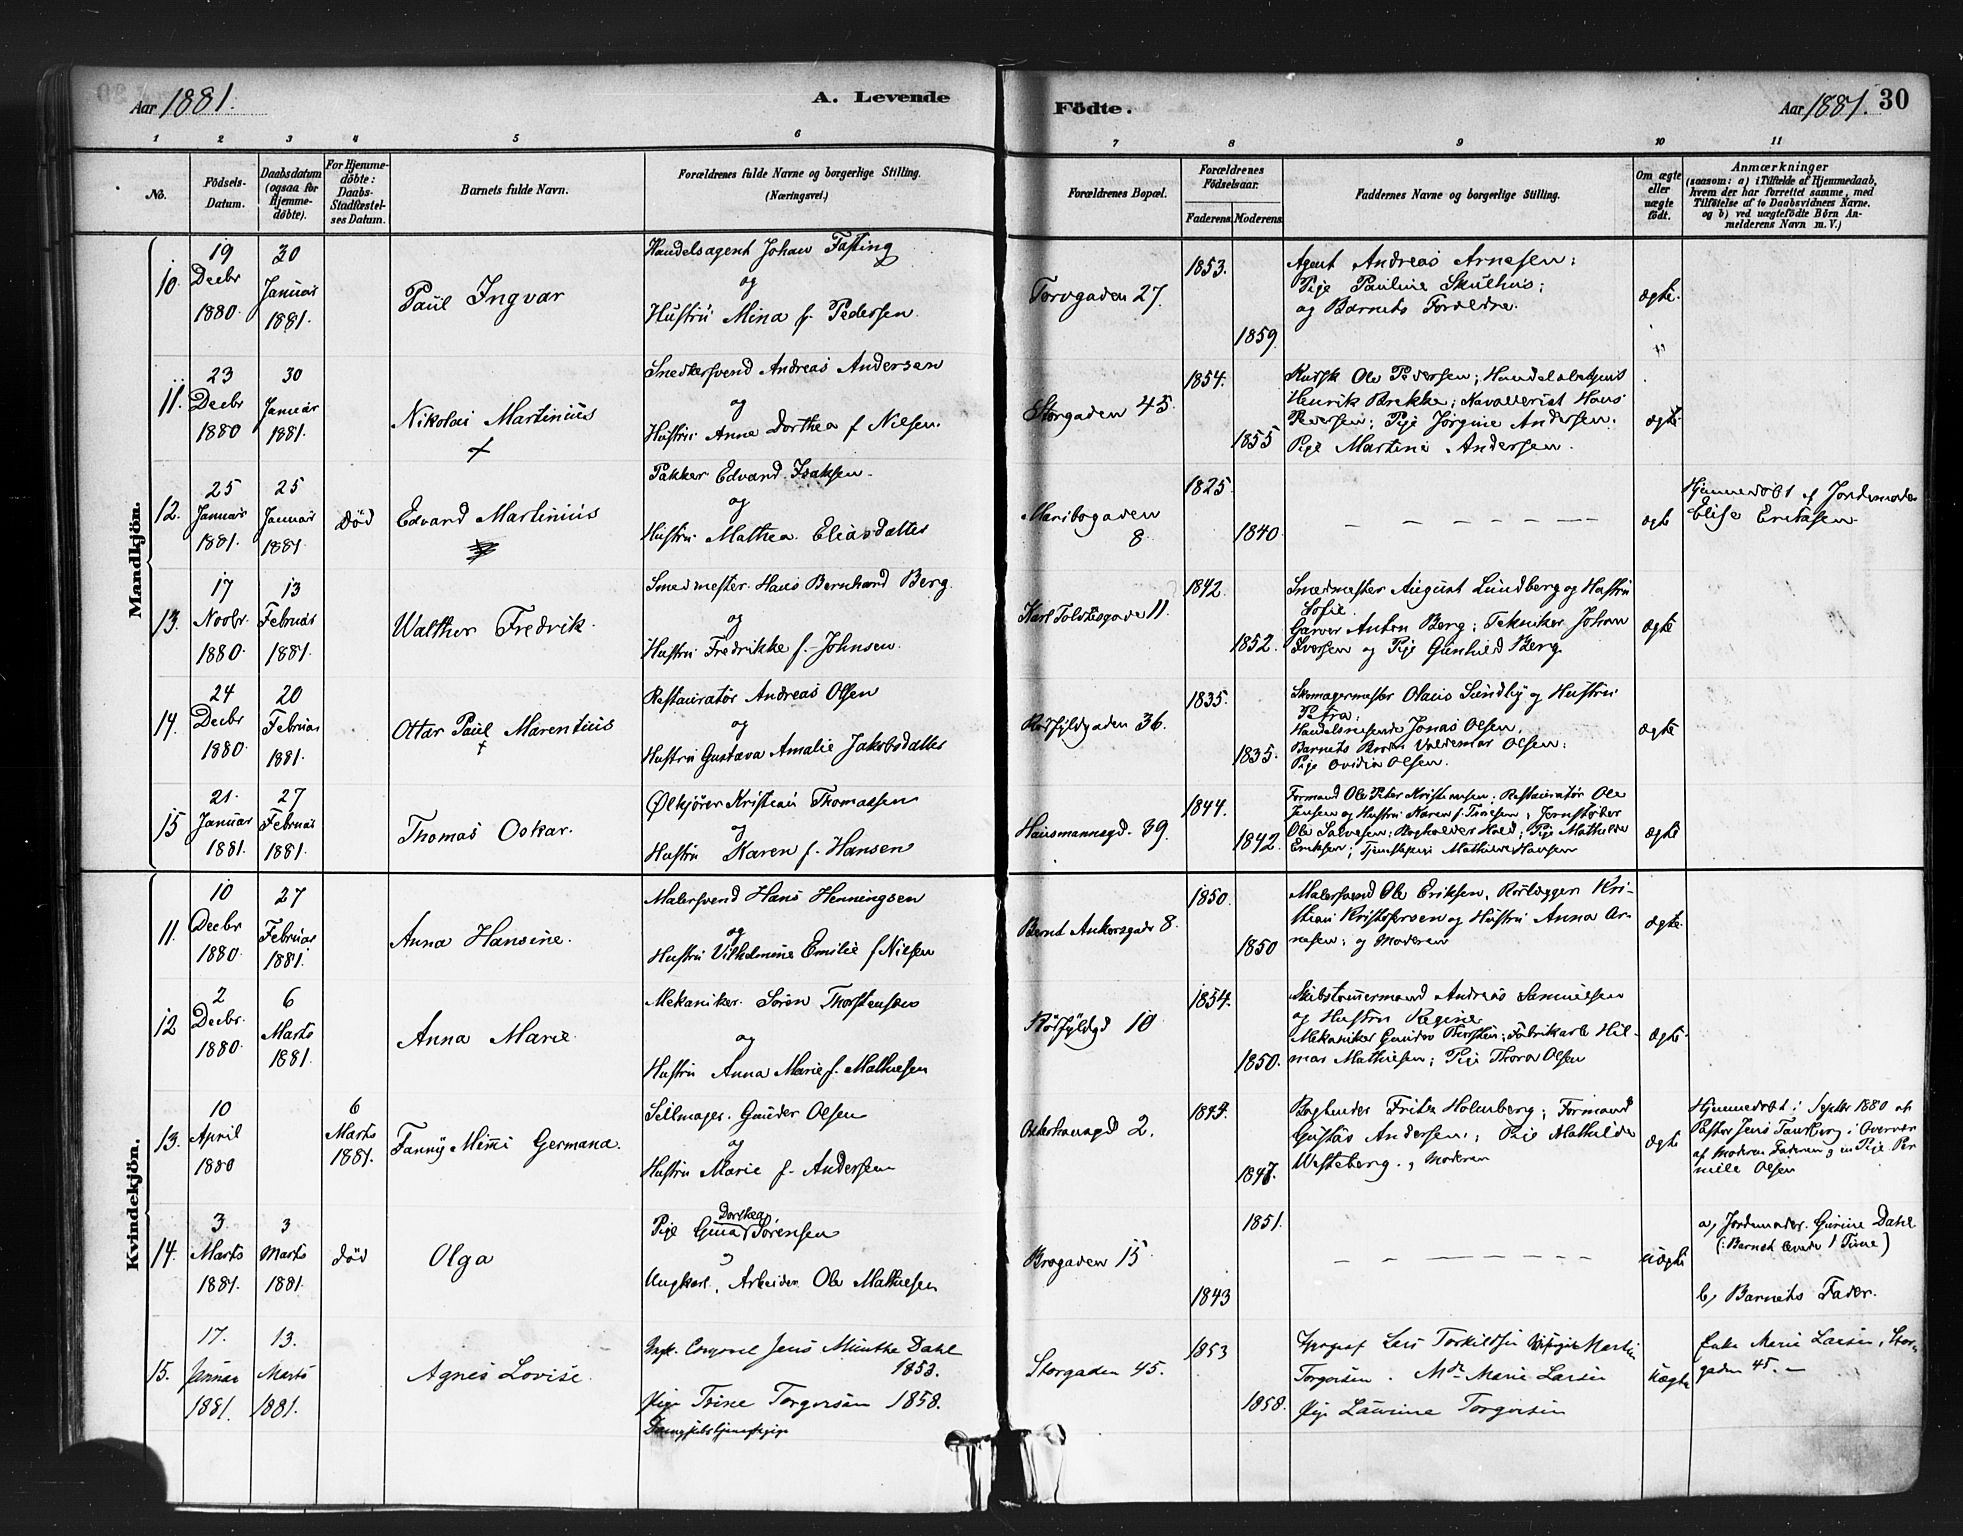 Aar 1881.
A. Levende
Födte.
Aar 1881.
30
1 2 3 4 5 6 7 8 9 10 11
No.
Födsels-
Datum.
Daabsdatum
(ogsaa for
Hjemme-
döbte).
For Hjemme-
döbte:
Daabs-
Stadfæstel-
ses Datum.
Barnets fulde Navn.
Forældrenes fulde Navne og borgerlige Stilling.
(Næringsvei.)
Forældrenes Bopæl.
Forældrenes
Födselsaar.
Faderens. Moderens.
Faddernes Navne og borgerlige Stilling.
Om ægte
eller
uægte
födt.
Anmærkninger
(saasom: a) i Tilfælde af Hjemmedaab,
hvem der har forrettet samme, med
Tilföielse af to Daabsvidners Navne.
og b) ved uægtefödte Börn An-
melderens Navn m. V.)
Mandkjön.
10.
19
Decbr
1880.
30
Januar
1881.
Paul Ingvar
Handelsagent Johan Fasting
og
Hustru Mina f. Pedersen.
Torvgaden 27.
1853.
1859.
Agent Andreas Arnesen;
Pige Pauline Skulhus;
og Barnets Forældre.
ægte.
11.
23
Decbr
1880
30
Januar
1881.
Nikolai Martinius
Snedkersvend Andreas Andersen
og
Hustru Anne Dorthea f. Nilsen.
Storgaden 45.
1854.
1855
Kudsk Ole Pedersen; Handelsbetjent
Henrik Brekke; Kavallerist Hans
Pedersen; Pige Jörgine Andersen.
Pige Martine Andersen.
ægte
12.
25
Januar
1881.
25
Januar
1881.
död
Edvard Martinius
Pakker Edvard Isaksen.
og
Hustru Mathea Eliasdatter
Maribogaden
8.
1825.
1840
ægte
Hjemmedöbt af Jordemoder
Elise Eriksen.
13.
17
Novbr.
1880.
13
Februar
1881.
Walther Fredrik.
Smedmester Hans Bernhard Berg.
og
Hustru Fredrikke f. Johnsen.
11.
1842.
1852.
Smedmester August Lundberg og Hustru
Sofie.
Garver Anton Berg; Tekniker Johan
Iversen og Pige Gunhild Berg
ægte
14.
24
Decbr
1880.
20
Februar
1881.
Ottar Paul Marentius
Restauratör Andreas Olsen
og
Hustru Gustava Amalie Jakobsdatter
Rödfyldgaden 36.
1835.
1835.
Skomagermester Olaus Sundby og Hustru
Petra;
Handelsreisende Jonas Olsen,
Barnets Broder Valdemar Olsen;
Pige Ovidia Olsen.
ægte
15
21.
Januar
1881.
27
Februar
1881.
Thomas Oskar.
Ölkjörer Kristian Thomassen
og
Hustru Karen f. Hansen
Hausmannsgd. 39.
1844.
1842.
Formand Ole Peter Kristensen; Restauratör Ole
Jensen og Hustru Karen f. Jernstöber
Ole Salvesen; Bogholder Pige Mathilde
Eriksen; Tjenestepige Mathilde Hansen
ægte
Kvindekjön.
11.
10
Decbr
1880.
27
Februar
1881.
Anna Hansine.
Malersvend Hans Henningsen
og
Hustru Vilhelmine Emilie f Nilsen
Bernt Ankersgade 8.
1850.
1850
Malersvend Ole Eriksen, Rörlægger Kri-
stian Kristofersen og Hustru Anna Ar-
nesen; og Moderen
ægte
12
2
Decbr.
1880.
6
Marts
1881.
Anna Marie
Mekaniker Sören Thorstensen
og
Hustru Anna Marie f. Mathiesen
Rödfyldgd 10
1854.
1850.
Skibstömmermand Andreas Samuelsen
og Hustru Regine
Mekaniker Gunder Thorsten; Fabrikarb Hil-
mar Mathiesen; Pige Thora Olsen
ægte.
13.
10
April
1880
6
Marts
1881.
Fanny Mimi Germana.
Seilmager Gunder Olsen
og
Hustru Marie f. Andersen
Osterhausgd 2.
1847.
Bogbinder Fritz Holmberg; Formand
Gustav Andersen; Pige Mathilde
Westeberg., Moderen
ægte
Hjemmedöbt i Septbr 1880 af
Pastor Jens i Overvær
af Moderen Faderen og en Pige Per
nille Olsen
14.
3.
Marts
1881.
3
Marts
1881.
död
Olga
Pige Gina Dorthea Sörensen
og
Ungkarl, Arbeider Ole Mathiesen
Brogaden 15
1851.
1843
uægte
a, Jordemoder Gurine Dahl
(: Barnet levede 1 Time)
b, Barnets Fader.
15.
17.
Januar
1881.
13.
Marts
1881.
Agnes Lovise.
Ungk. Jens Munthe Dahl
1853.
Pige Trine Torgersen 1858.
Storgaden 45.
1853
1858.
Typograf Lars Torkildsen Martin
Torgersen. Mde Marie Larsen
Pige Laurine Torgersen
Uægte
Enke Marie Larsen, Stor-
gaden 45.